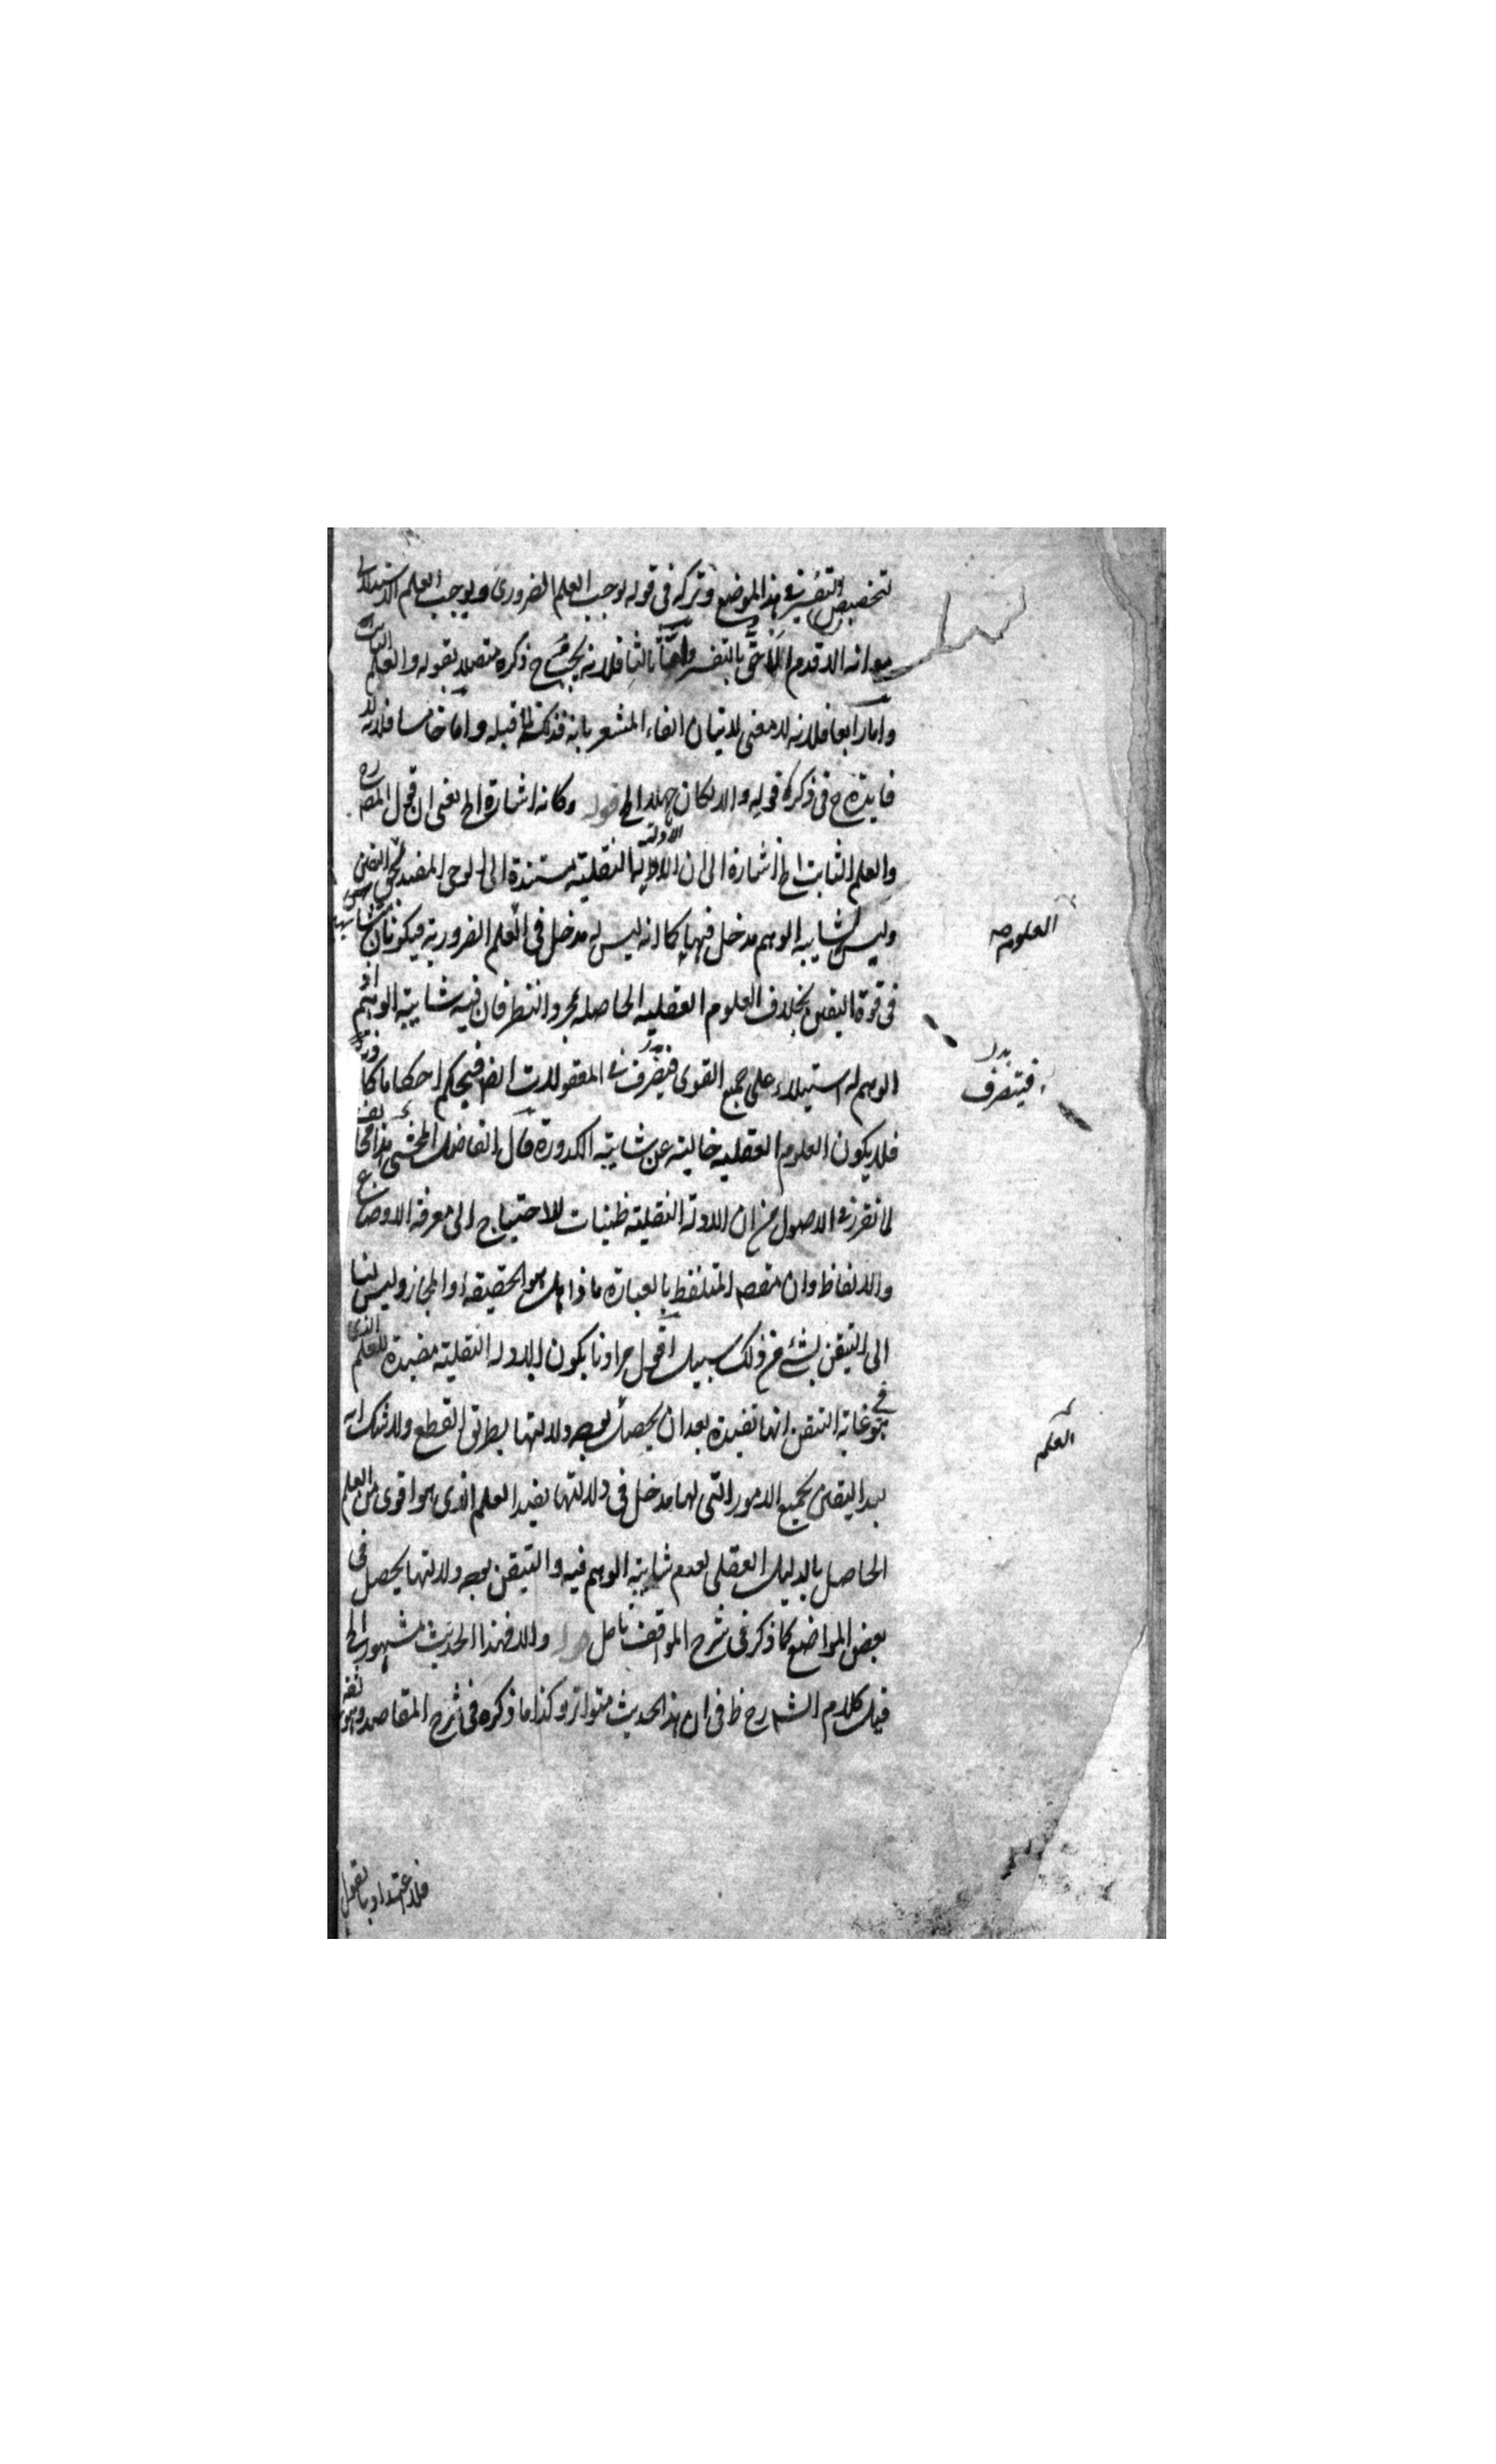 لتخصيص التفسير في هذا الموضع وتركه في قوله يوجب العلم الضروري ويوجب العلم الاستدلالي
مع انه الاقدم الاحق بالتفسير واما ثالثا فلانه يجب ح ذكره متصلا بقوله والعلم الثابت
واما رابعا فلانه لا معنى لاتيان الفاء المشعر بانه فذلكة لما قبله واما خامسا فلانه لا
فايدة ح في ذكره قوله والا لكان جهلا الخ قوله وكانه اشارة الخ يعنى ان قول المصره
والعلم الثابت الخ اشارة الى ان الادلة النقلية مستندة الى الوحى المفيد حق اليقين
وليس لشايبة الوهم مدخل فيها كما انه ليس له مدخل في العلم الضرورية فيكونان متشابهين
العلوم صح
في قوة اليقين بخلاف العلوم العقلية الحاصلة بمجرد النظر فان فيه شايبة الوهم اذ
الوهم له استيلاء على جميع القوى فيتصرف في المعقولات ايضا فيحكم احكاما كاذبة
بدل
فيتصرف
فلا يكون العلوم العقلية خالية عن شايبة الكدورة قال الفاضل المحشى هذا مخالف
لما تقرر في الاصول من ان الادلة النقلية ظنيات للاحتياج الى معرفة الاوضاع
والالفاظ وان مقصد المتلفظ بالعبارة ماذا هل هو الحقيقة او المجاز وليس لنا
الى التيقن بشئ من ذلك سبيل اقول مرادنا بكون الادلة النقلية مفيدة للعلم الذى
هو في غاية التيقن انها تفيده بعد ان يحصل بوجه دلالتها بطريق القطع ولا شك انه
العلم
بعد اليقين بجميع الامور التى لها مدخل في دلالتها يفيد العلم الذى هو اقوى من العلم
الحاصل بالدليل العقلى لعدم شايبة الوهم فيه والتيقن بوجه دلالتها يحصل في
بعض المواضع كما ذكر في شرح المواقف تامل قوله والا فهذا الحديث مشهور الخ
قيل كلام الشارح ظ في ان هذا الحديث متواتر وكذا ما ذكره في شرح المقاصد وهو ثقة
فلا اعتداد بالقول